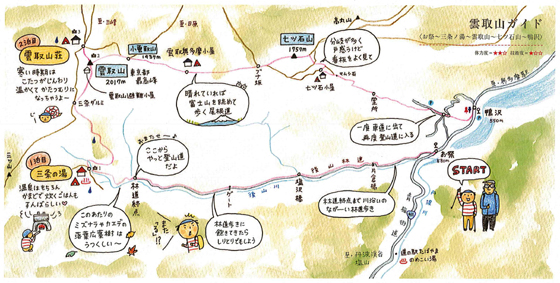 雲取山ガイド
〈お祭〜三条ノ湯〜雲取山〜七ツ石山〜鴨沢〉
2日目
雲取山荘
寒い時期は
こたつがじんわり
温かくてかたつむりに
なっちゃうよ〜
三条ダルミ
小雲取山
1937m
雲取山
2017m
東京都
最高峰
雲取奥多摩小屋
雲取山避難小屋
晴れていれば
富士山を眺めて
歩く尾根道
ブナ坂
七ツ石山
1757m
七ツ石小屋
分岐が多く
戸惑うけど
看板をよく見て
堂所
一度車道に出て
再度登山道に入る
鴨沢
550m
お祭
START
1日目
三条の湯
温泉はもちろん
かまどで炊くごはんも
すんばらしい
おまたせ〜
ここから
やっと登山道
だよ
林道終点
このあたりの
ミズナラやカエデの
落葉広葉樹は
うつくしい〜
まだ
つづく!?
ゲート
後山川
後山林道
塩沢橋
片倉橋
林道歩きに
飽きてきたら
しりとりをしよう
林道終点まで川沿いの
なが〜い林道歩き
青梅街道
至・丹波渓谷
塩山
道の駅たばやま
のめこい湯